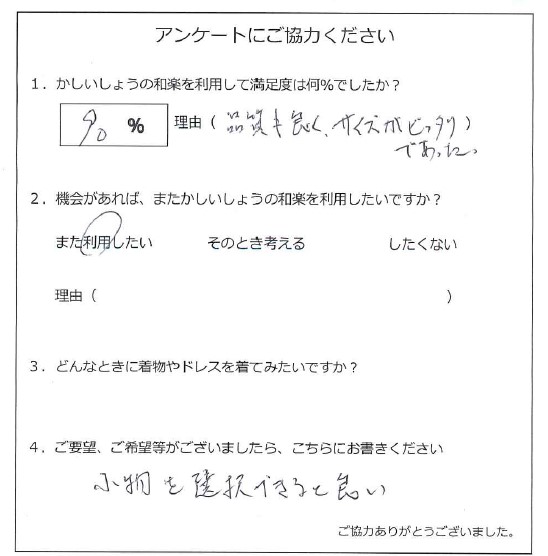 アンケートにご協力ください
1．かしいしょうの和楽を利用して満足度は何％でしたか？
90 % 理由（品質も良く、サイズがピッタリ）
であった。
2．機会があれば、またかしいしょうの和楽を利用したいですか？
また利用したい そのとき考える したくない
理由（ ）
3．どんなときに着物やドレスを着てみたいですか？
4．ご要望、ご希望等がございましたら、こちらにお書きください
小物を選択できると良い
ご協力ありがとうございました。